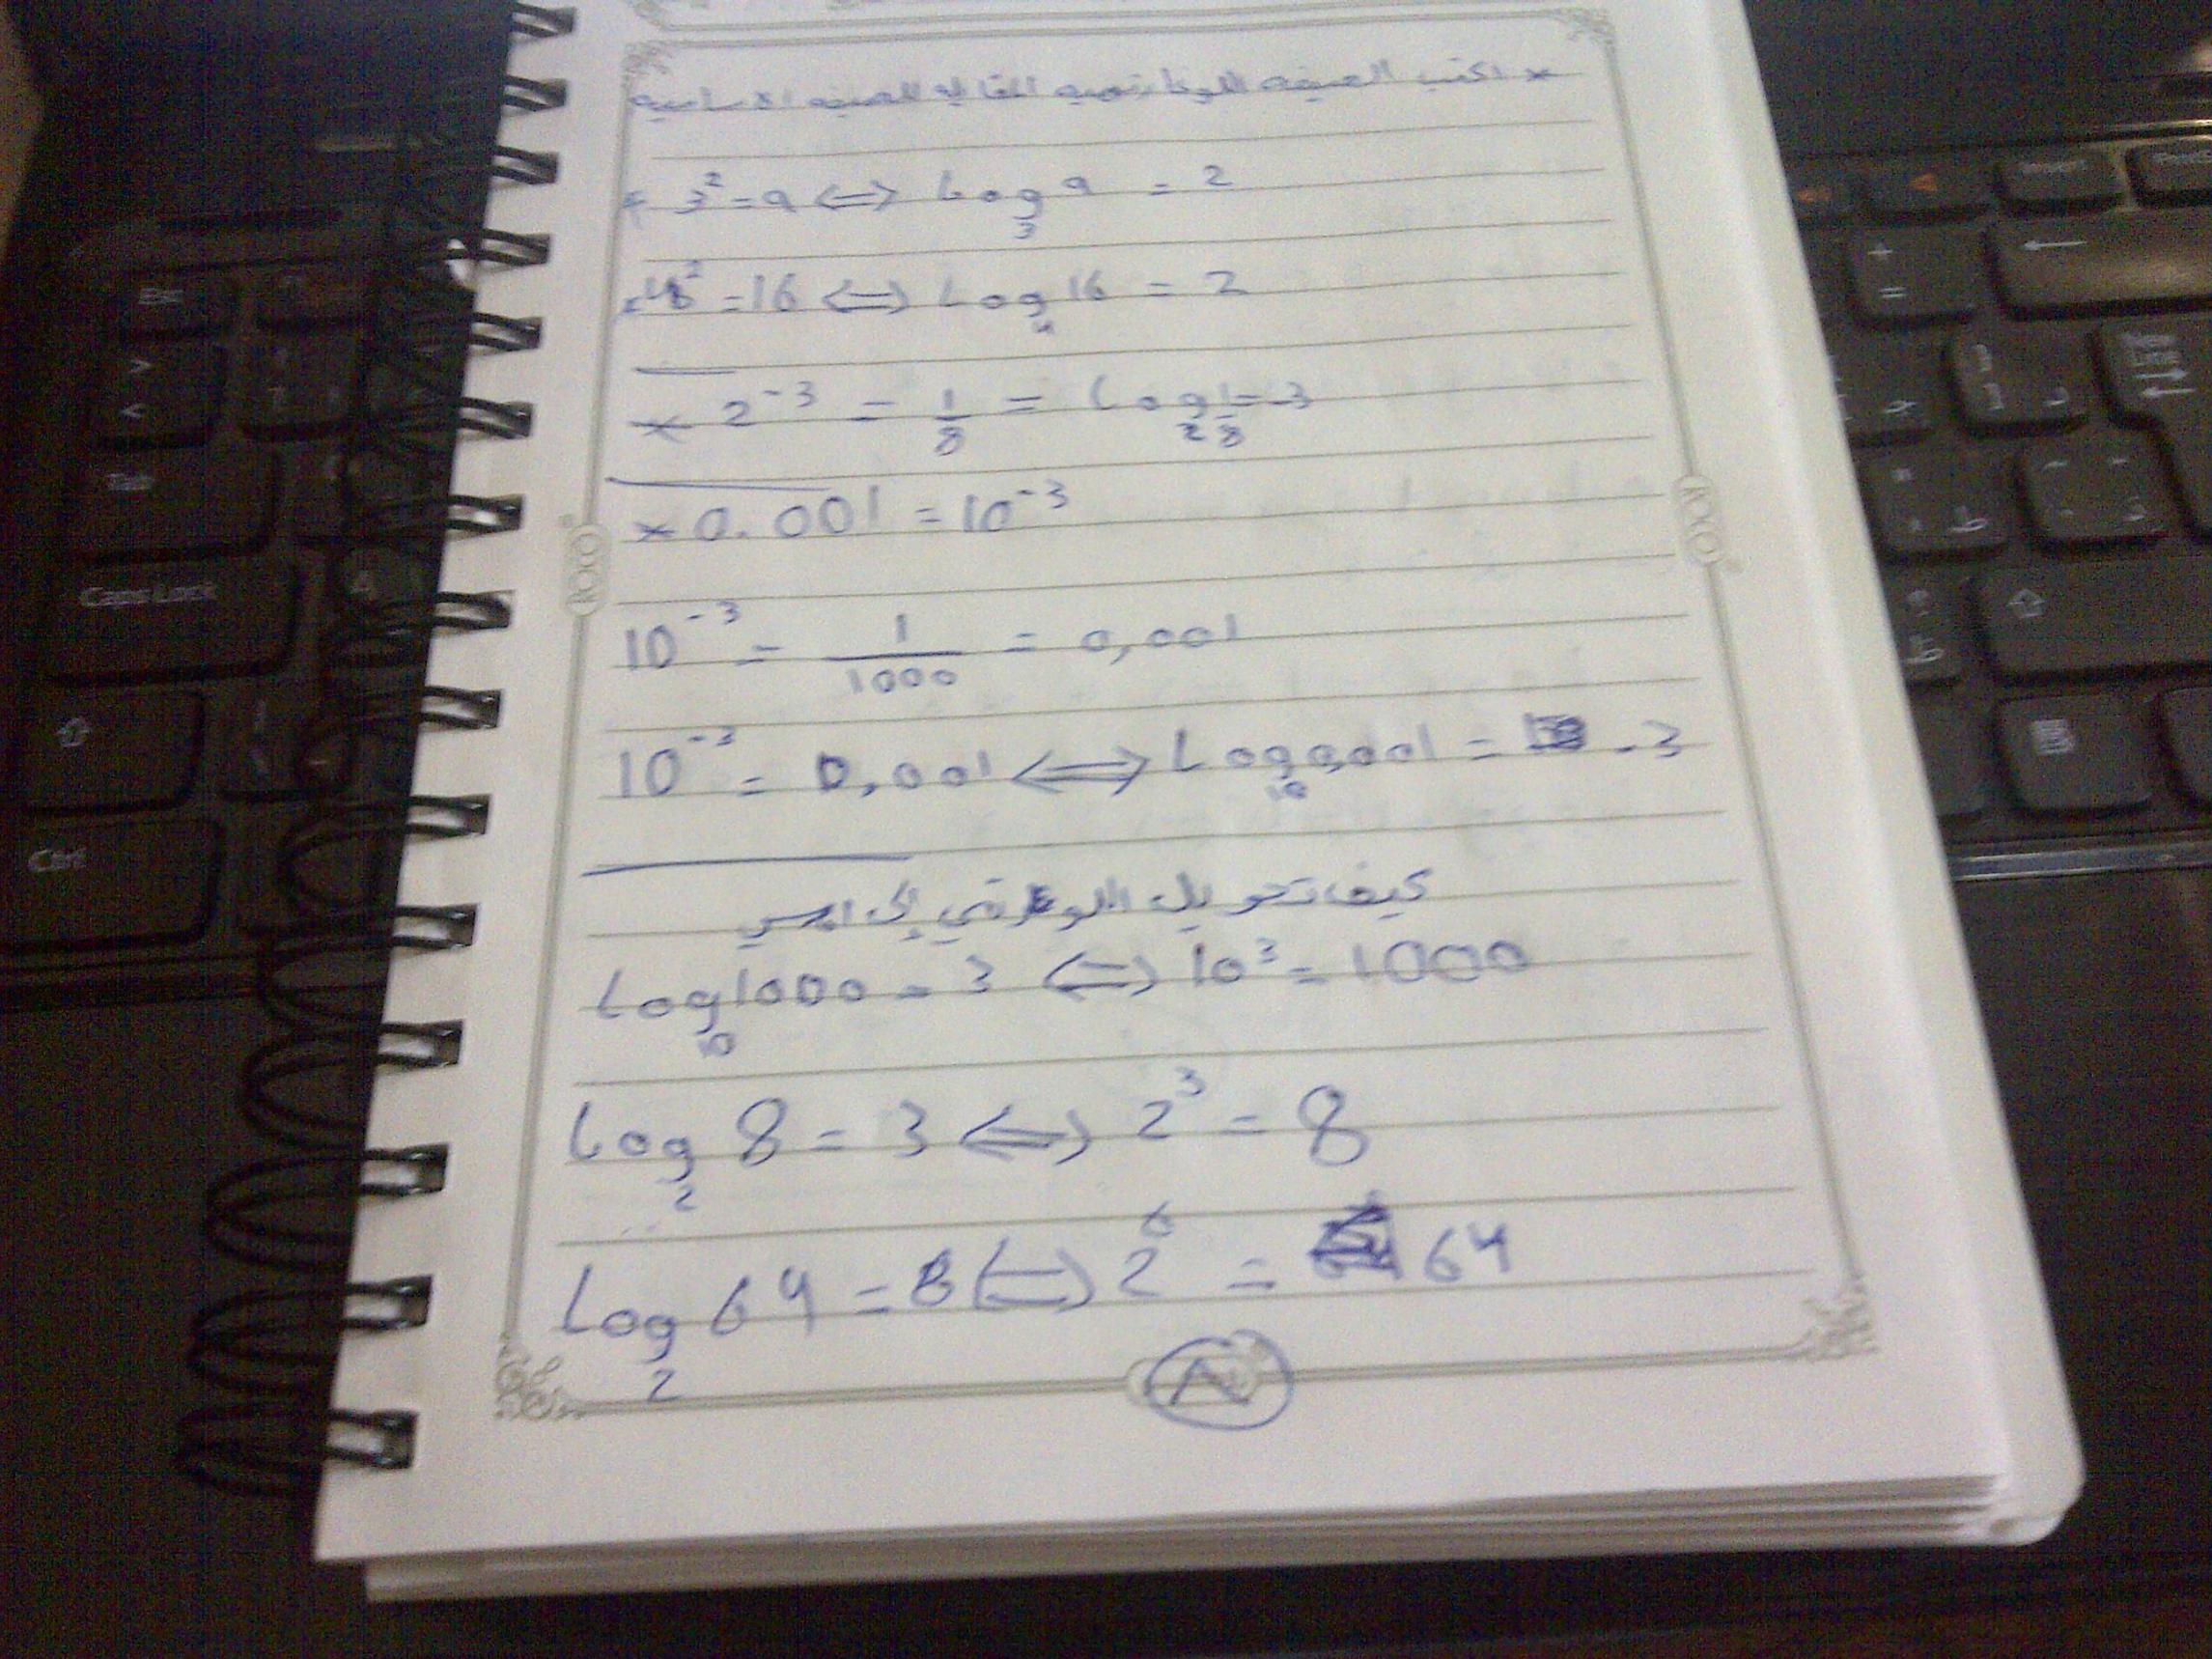 * اكتب الصيغه اللوغارتميه المقابله للصيغه الاساسيه
* 3² = 9 ⇔ Log₃ 9 = 2
* 4² = 16 ⇔ Log₄ 16 = 2
* 2⁻³ = 1/8 = Log₂ 1/8 = -3
* 0.001 = 10⁻³
10⁻³ = 1/1000 = 0,001
10⁻³ = 0,001 ⇔ Log₁₀ 0,001 = -3
كيف تحويل اللوغارتمي إلى
Log₁₀ 1000 = 3 ⇔ 10³ = 1000
Log₂ 8 = 3 ⇔ 2³ = 8
Log₂ 64 = 6 ⇔ 2⁶ = 64
٨
Esc
Tab
Caps Lock
Ctrl